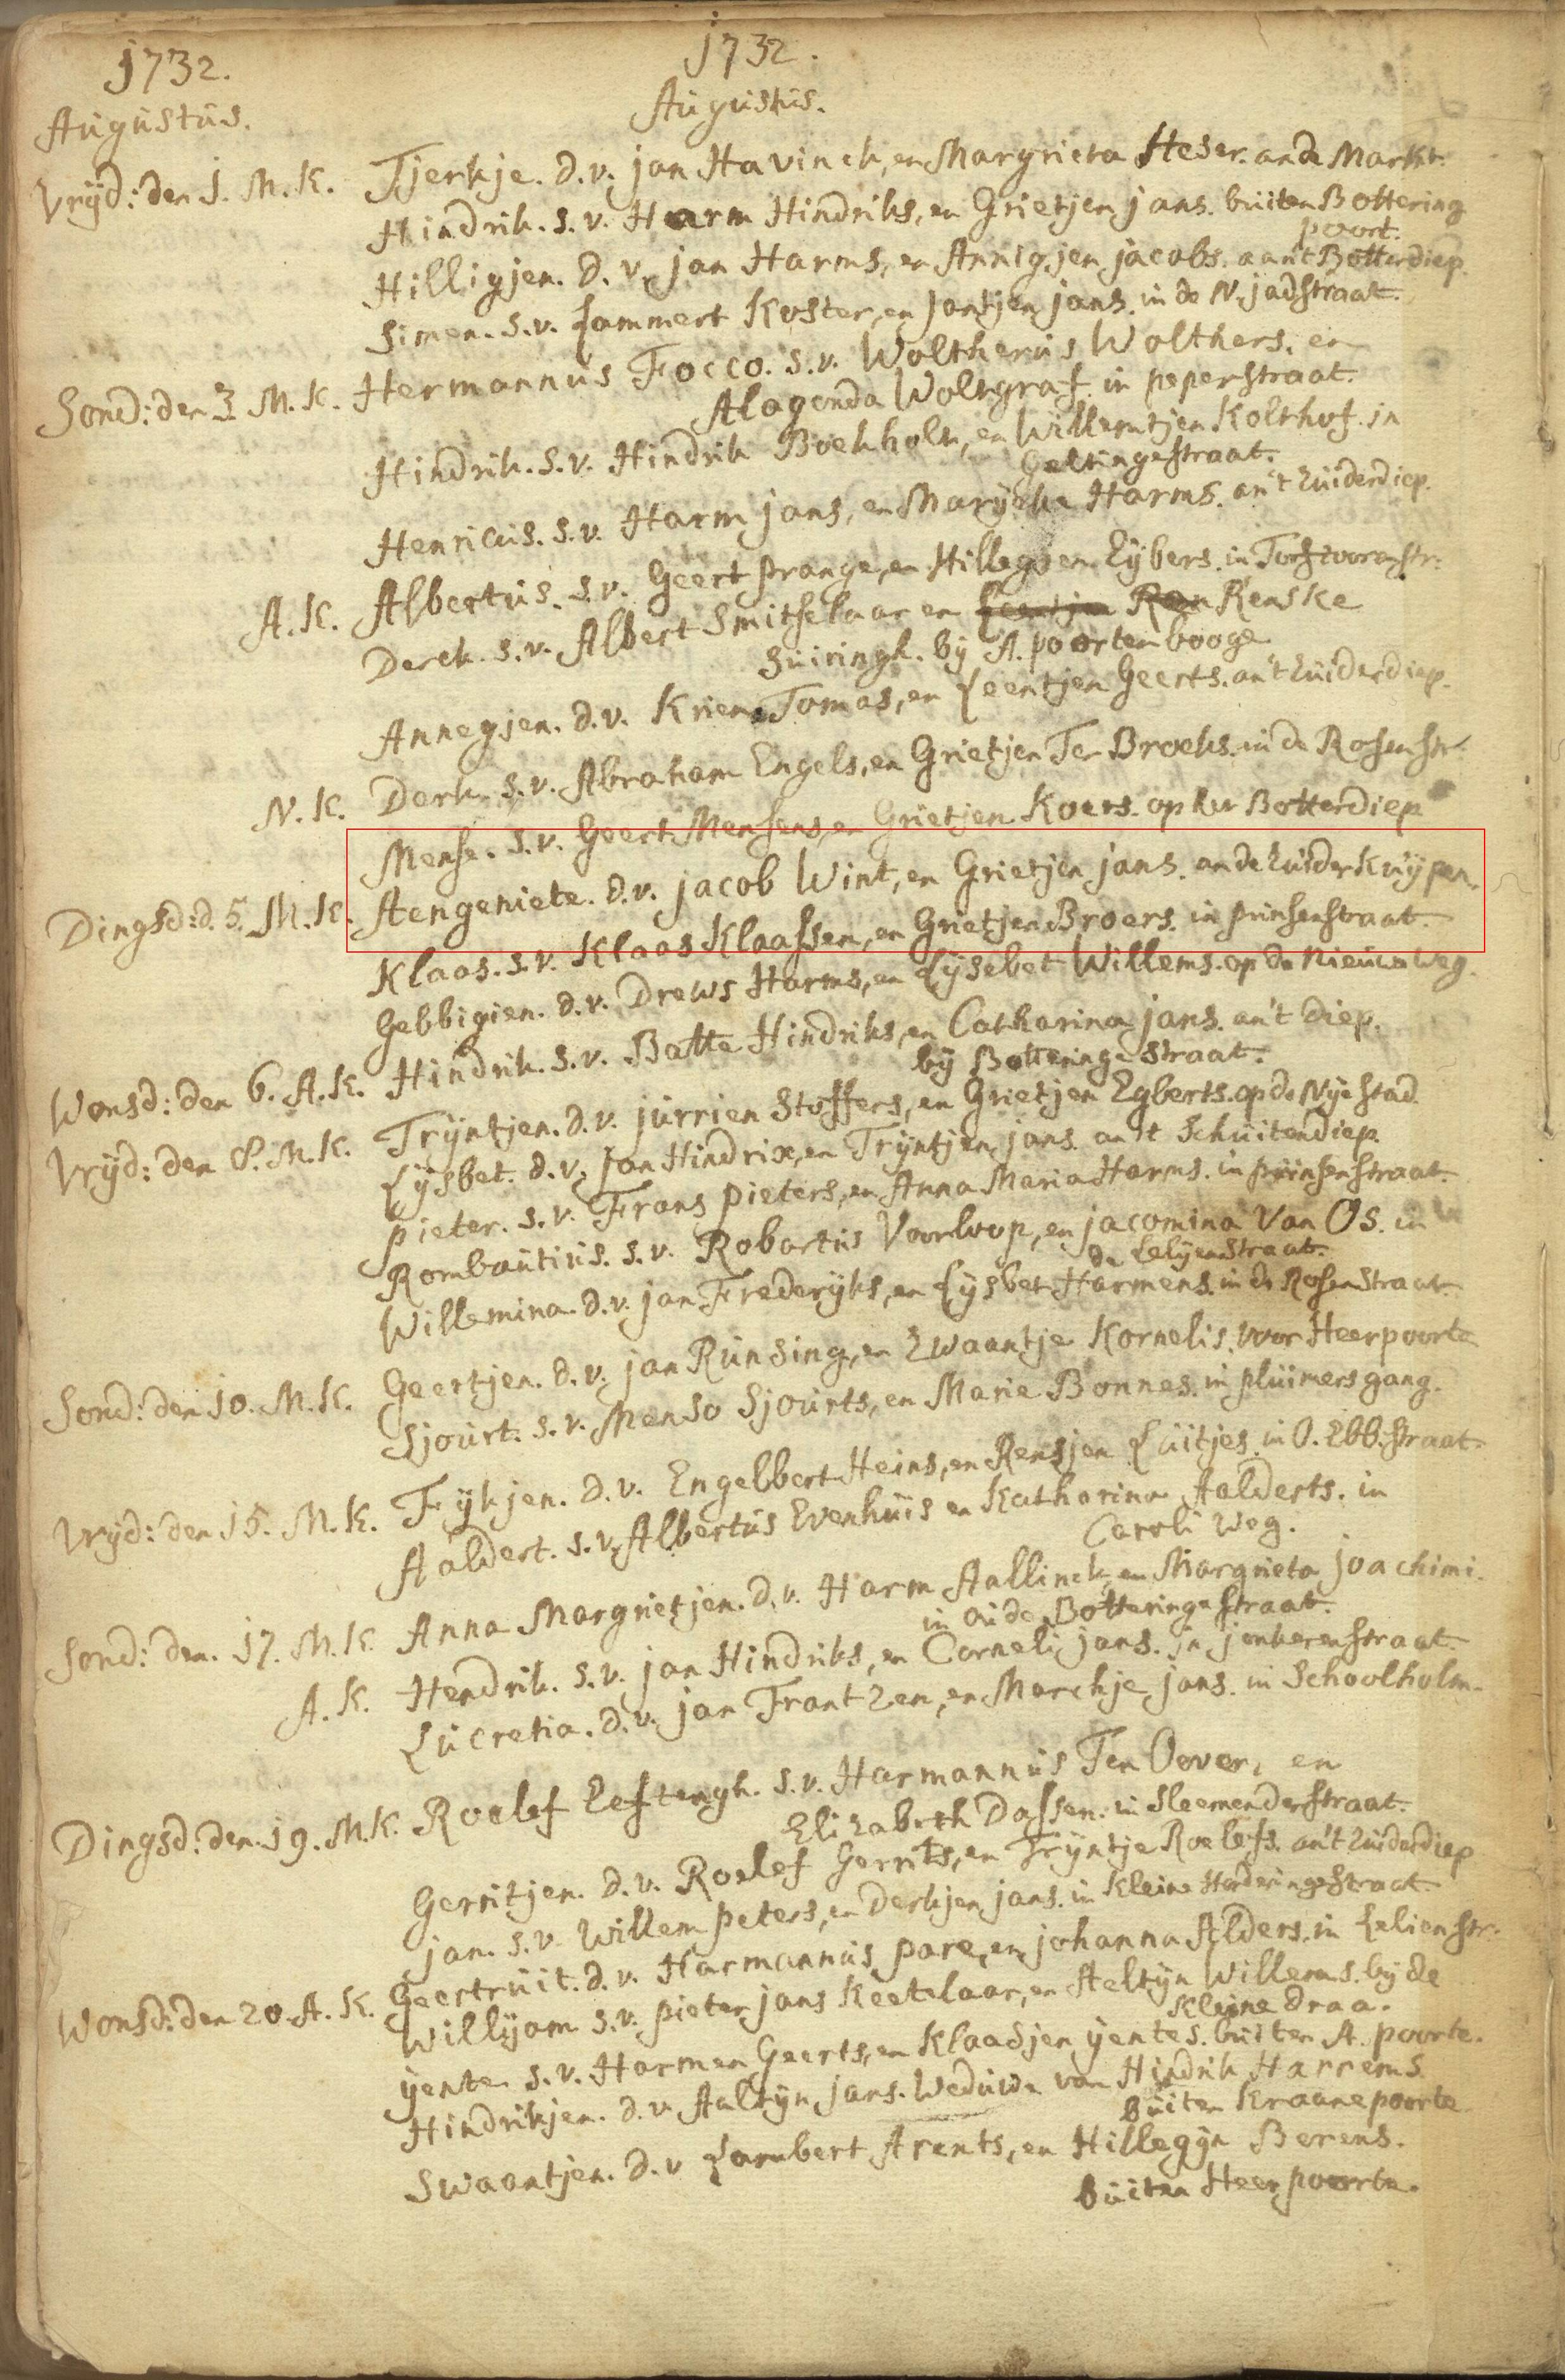 1732. 1732.
Augustus. Augustus.
Vrÿd: den 1. M. K. Tjerkje. d. v. jan Havinck, en Margrieta Heser. an de Markt.
Hindrik. s. v. Harm Hindriks, en Grietjen jans. buiten Bottering
poort.
Hilligjen. d. v. jan Harms, en Annigjen jacobs. aan't Botterdiep.
Simen. s. v. Lammert Koster, en Jantjen jans. in de N. jadstraat.
Sond: den 3 M. K. Hermannus Focco. s. v. Woltherus Wolthers, en
Alagonda Woltgraf. in peperstraat.
Hindrik. s. v. Hindrik Boekholt, en Willemtjen Kolthof. in
Geltingestraat.
Henricus. s. v. Harm jans, en Marÿcke Harms. an't Zuiderdiep.
A. K. Albertus. s. v. Geert prange, en Hillegjen Eÿbers. in Torstoorenstr.
Derck. s. v. Albert Smitselaar en Renske
Suiringh. bÿ A. poortenbooge
Annegjen. d. v. Krien Tomas, en Leentjen Geerts. an't Zuiderdiep.
N. K. Derk. s. v. Abraham Engels, en Grietjen Ter Broeks. in de Rosenstr.
Mense. s. v. Geert Mensens, en Grietjen Koers. op het Botterdiep
Dingsd: d. 5. M. K. Aengeniete. d. v. jacob Wint, en Grietjen jans. an de Zuiderkuÿpen.
Klaas. s. v. Klaas Klaassen, en Grietjen Broers. in prinsenstraat.
Gebbigien. d. v. Drews Harms, en Lÿsebet Willems. op de Nieuwe Weg.
Wonsd: den 6. A. K. Hindrik. s. v. Batte Hindriks, en Catharina jans. an't diep.
bÿ Botteringe straat.
Vrÿd: den 8. M. K. Trÿntjen. d. v. jurrien Stoffers, en Grietjen Egberts. op de Nÿe stad.
Lÿsbet. d. v. Jan Hindrix, en Trÿntjen jans. an't Schuitendiep.
pieter. s. v. Frans pieters, en Anna Maria Harms. in prinsenstraat.
Rombautius. s. v. Robartus Voorloop, en jacomina Van Os. in
de Lelÿenstraat.
Willemina. d. v. jan Frederÿks, en Lÿsbet Harmens. in de Rosenstraat.
Sond: den 10. M. K. Geertjen. d. v. jan Runsing, en Zwaantje Kornelis. voor Heerpoorte
Sjourt. s. v. Menso Sjourts, en Marie Bonnes. in pluimersgang.
Vrÿd: den 15. M. K. Fÿkjen. d. v. Engelbert Heins, en Rensjen Luitjes. in O. Ebb. straat.
Aaldert. s. v. Albertus Evenhuis en Katharina Aalderts. in
Caroli Weg.
Sond: den. 17. M. K. Anna Margrietjen. d. v. Harm Aallinck, en Margrieta joachimi.
in Oude Botteringestraat.
A. K. Hendrik. s. v. jan Hindriks, en Corneli jans. in jonkerenstraat.
Lucretia. d. v. jan Frantzen, en Marchje jans. in Schoolholm.
Dingsd: den. 19. M. K. Roelef Eeftengh. s. v. Harmannus Ten Oever, en
Elizabeth Dassen. in Sleemenderstraat.
Gerritjen. d. v. Roelef Gerrits, en Trÿntje Roelefs. an't Zuiderdiep
jan. s. v. Willem peters, en Derkjen jans. in Kleine Harderingestraat.
Geertruit. d. v. Harmannus pare, en johanna Alders. in Lelienstr.
Wonsd: den 20. A. K. Willÿam s. v. pieter jans Keetelaar, en Aeltÿn Willems. bÿ de
Kleine draa.
ÿente. s. v. Harmen Geerts, en Klaasjen ÿentes. buiten A. poorte.
Hindrikjen. d. v. Aaltÿn jans. Weduwe van Hindrik Harrems
Buiten Kraanepoorte.
Swaantjen. d. v. Lambert Arents, en Hillegÿn Berens.
Buiten Heerpoorte.